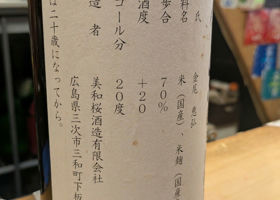 氏
料名 米(国産) 米麹(国産
歩合 70%
酒度 +20
コール分 20度
造者 美和桜酒造有限会社
広島県三次市三和町下板
は二十歳になってから。